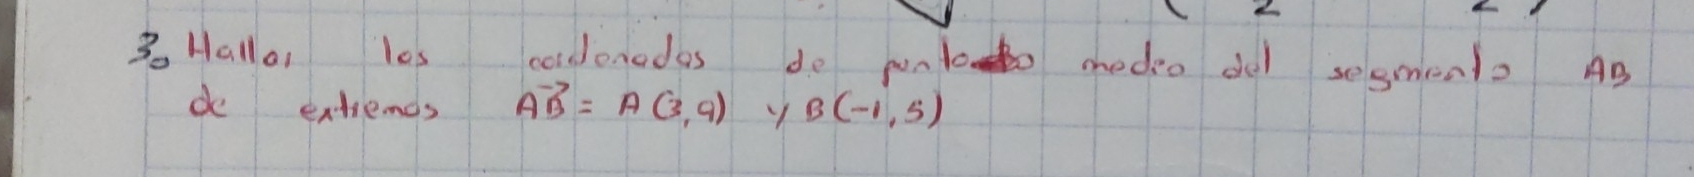 3. Hallar los coordenadas de punto medio del segmento AB
de extremos AB = A (3,9) y B (-1,5)